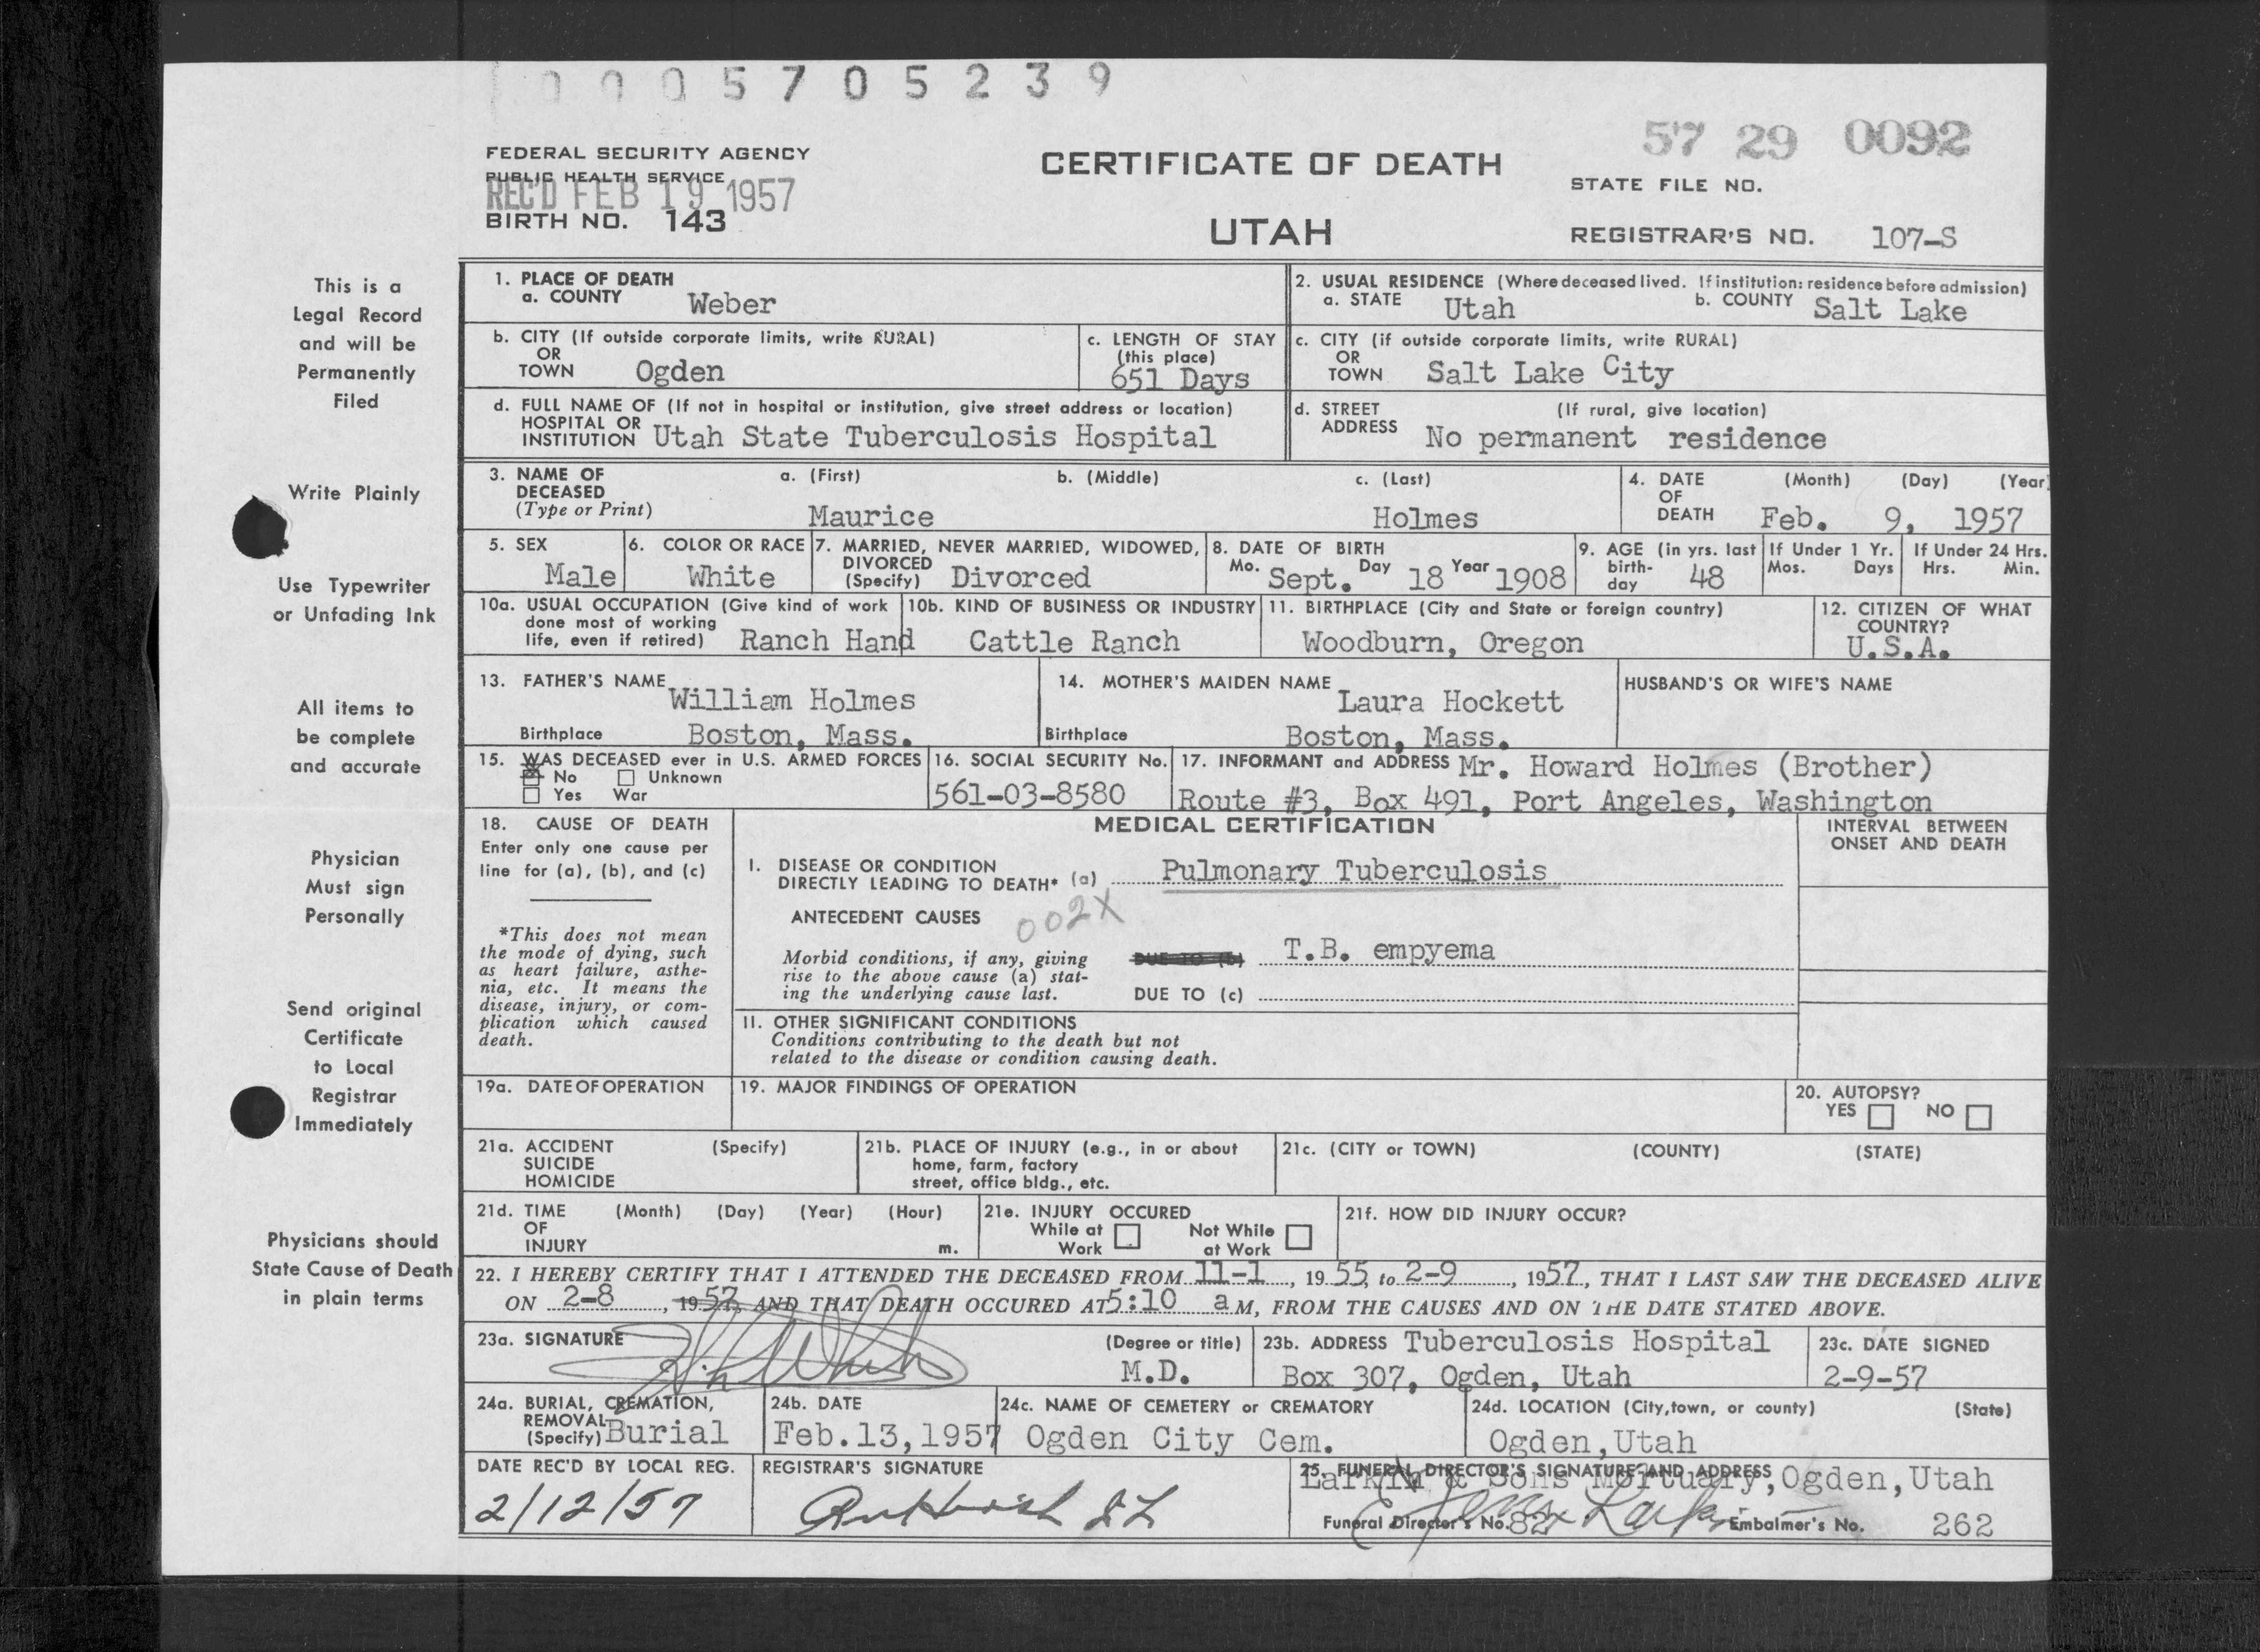 0005705239
57 29 0092
FEDERAL SECURITY AGENCY
PUBLIC HEALTH SERVICE
REC'D FEB 19 1957
BIRTH NO. 143
CERTIFICATE OF DEATH
UTAH
STATE FILE NO.
REGISTRAR'S NO. 107-S
This is a
Legal Record
and will be
Permanently
Filed
Write Plainly
Use Typewriter
or Unfading Ink
All items to
be complete
and accurate
Physician
Must sign
Personally
Send original
Certificate
to Local
Registrar
Immediately
Physicians should
State Cause of Death
in plain terms
1. PLACE OF DEATH
a. COUNTY Weber
2. USUAL RESIDENCE (Where deceased lived. If institution: residence before admission)
a. STATE Utah b. COUNTY Salt Lake
b. CITY (If outside corporate limits, write RURAL)
OR
TOWN Ogden
c. LENGTH OF STAY
(this place)
651 Days
c. CITY (if outside corporate limits, write RURAL)
OR
TOWN Salt Lake City
d. FULL NAME OF (If not in hospital or institution, give street address or location)
HOSPITAL OR
INSTITUTION Utah State Tuberculosis Hospital
d. STREET (If rural, give location)
ADDRESS No permanent residence
3. NAME OF a. (First) b. (Middle) c. (Last)
DECEASED
(Type or Print) Maurice Holmes
4. DATE (Month) (Day) (Year)
OF
DEATH Feb. 9, 1957
5. SEX
Male
6. COLOR OR RACE
White
7. MARRIED, NEVER MARRIED, WIDOWED,
DIVORCED
(Specify) Divorced
8. DATE OF BIRTH
Mo. Sept. Day 18 Year 1908
9. AGE (in yrs. last
birth-
day 48
If Under 1 Yr.
Mos. Days
If Under 24 Hrs.
Hrs. Min.
10a. USUAL OCCUPATION (Give kind of work
done most of working
life, even if retired) Ranch Hand
10b. KIND OF BUSINESS OR INDUSTRY
Cattle Ranch
11. BIRTHPLACE (City and State or foreign country)
Woodburn, Oregon
12. CITIZEN OF WHAT
COUNTRY?
U.S.A.
13. FATHER'S NAME William Holmes
Birthplace Boston, Mass.
14. MOTHER'S MAIDEN NAME Laura Hockett
Birthplace Boston, Mass.
HUSBAND'S OR WIFE'S NAME
15. WAS DECEASED ever in U.S. ARMED FORCES
No Unknown
Yes War
16. SOCIAL SECURITY No.
561-03-8580
17. INFORMANT and ADDRESS Mr. Howard Holmes (Brother)
Route #3, Box 491, Port Angeles, Washington
18. CAUSE OF DEATH
Enter only one cause per
line for (a), (b), and (c)
*This does not mean
the mode of dying, such
as heart failure, asthe-
nia, etc. It means the
disease, injury, or com-
plication which caused
death.
MEDICAL CERTIFICATION
INTERVAL BETWEEN
ONSET AND DEATH
I. DISEASE OR CONDITION
DIRECTLY LEADING TO DEATH* (a) Pulmonary Tuberculosis
ANTECEDENT CAUSES 002X
Morbid conditions, if any, giving
rise to the above cause (a) stat-
ing the underlying cause last.
DUE TO (b) T.B. empyema
DUE TO (c)
II. OTHER SIGNIFICANT CONDITIONS
Conditions contributing to the death but not
related to the disease or condition causing death.
19a. DATE OF OPERATION
19. MAJOR FINDINGS OF OPERATION
20. AUTOPSY?
YES NO
21a. ACCIDENT (Specify)
SUICIDE
HOMICIDE
21b. PLACE OF INJURY (e.g., in or about
home, farm, factory
street, office bldg., etc.
21c. (CITY or TOWN) (COUNTY) (STATE)
21d. TIME (Month) (Day) (Year) (Hour)
OF
INJURY m.
21e. INJURY OCCURED
While at Not While
Work at Work
21f. HOW DID INJURY OCCUR?
22. I HEREBY CERTIFY THAT I ATTENDED THE DECEASED FROM 11-1, 1955, to 2-9, 1957, THAT I LAST SAW THE DECEASED ALIVE
ON 2-8, 1957, AND THAT DEATH OCCURED AT 5:10 a M, FROM THE CAUSES AND ON THE DATE STATED ABOVE.
23a. SIGNATURE (Degree or title)
M.D.
23b. ADDRESS Tuberculosis Hospital
Box 307, Ogden, Utah
23c. DATE SIGNED
2-9-57
24a. BURIAL, CREMATION,
REMOVAL
(Specify) Burial
24b. DATE
Feb.13,1957
24c. NAME OF CEMETERY or CREMATORY
Ogden City Cem.
24d. LOCATION (City,town, or county) (State)
Ogden,Utah
DATE REC'D BY LOCAL REG.
2/12/57
REGISTRAR'S SIGNATURE
25. FUNERAL DIRECTOR'S SIGNATURE AND ADDRESS
Larkin & Sons Mortuary,Ogden,Utah
Funeral Director's No. 82 Larkin Embalmer's No. 262